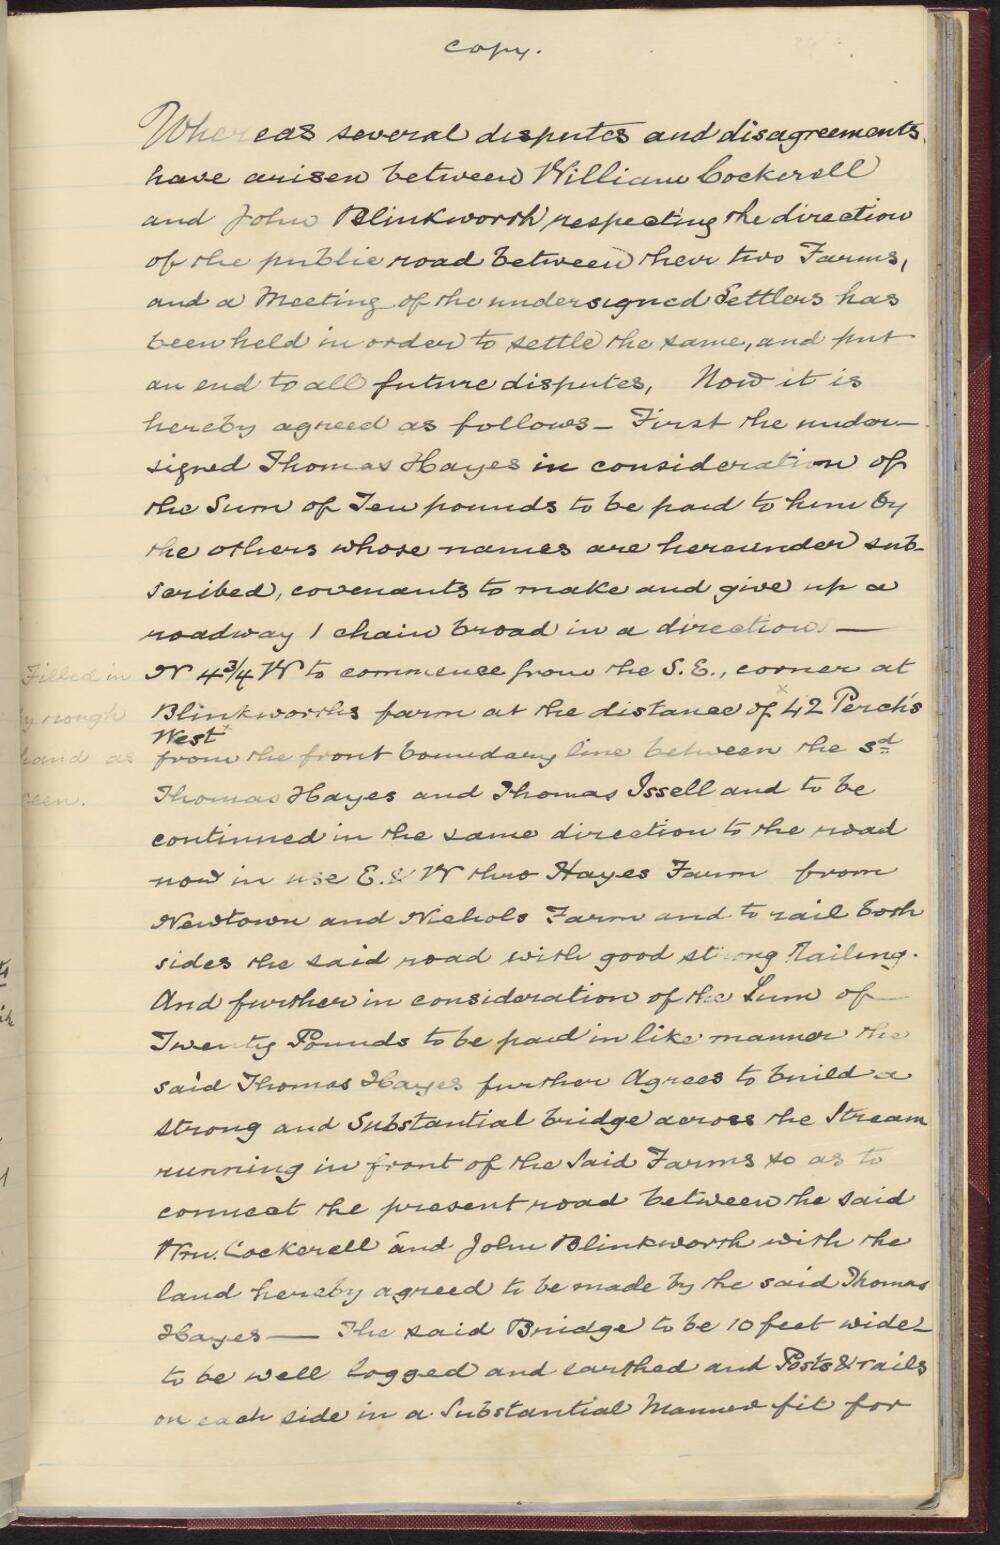 copy.
Whereas several disputes and disagreements
have arisen between William Cockerell
and John Blinkworth respecting the direction
of the public road between their two Farms,
and a Meeting of the undersigned Settlers has
been held in order to settle the same, and put
an end to all future disputes, Now it is
hereby agreed as follows — First the under-
signed Thomas Hayes in consideration of
the Sum of Ten pounds to be paid to him by
the others whose names are hereunder sub-
scribed, covenants to make and give up a
roadway 1 chain broad in a direction —
Filled in N 4¾ W to commence from the S.E., corner at
by rough Blinkworths farm at the distance of x 42 Perch's
West x
hand as from the front boundary line between the sd
seen. Thomas Hayes and Thomas Issell and to be
continued in the same direction to the road
now in use E. & W thro Hayes Farm from
Newtown and Nichols Farm and to rail both
sides the said road with good strong Railing.
And further in consideration of the Sum of
Twenty Pounds to be paid in like manner the
said Thomas Hayes further Agrees to build a
strong and Substantial bridge across the Stream
running in front of the Said Farms so as to
connect the present road between the said
Wm. Cockerell and John Blinkworth with the
land hereby agreed to be made by the said Thomas
Hayes — The said Bridge to be 10 feet wide —
to be well logged and earthed and Posts & rails
on each side in a Substantial Manner fit for